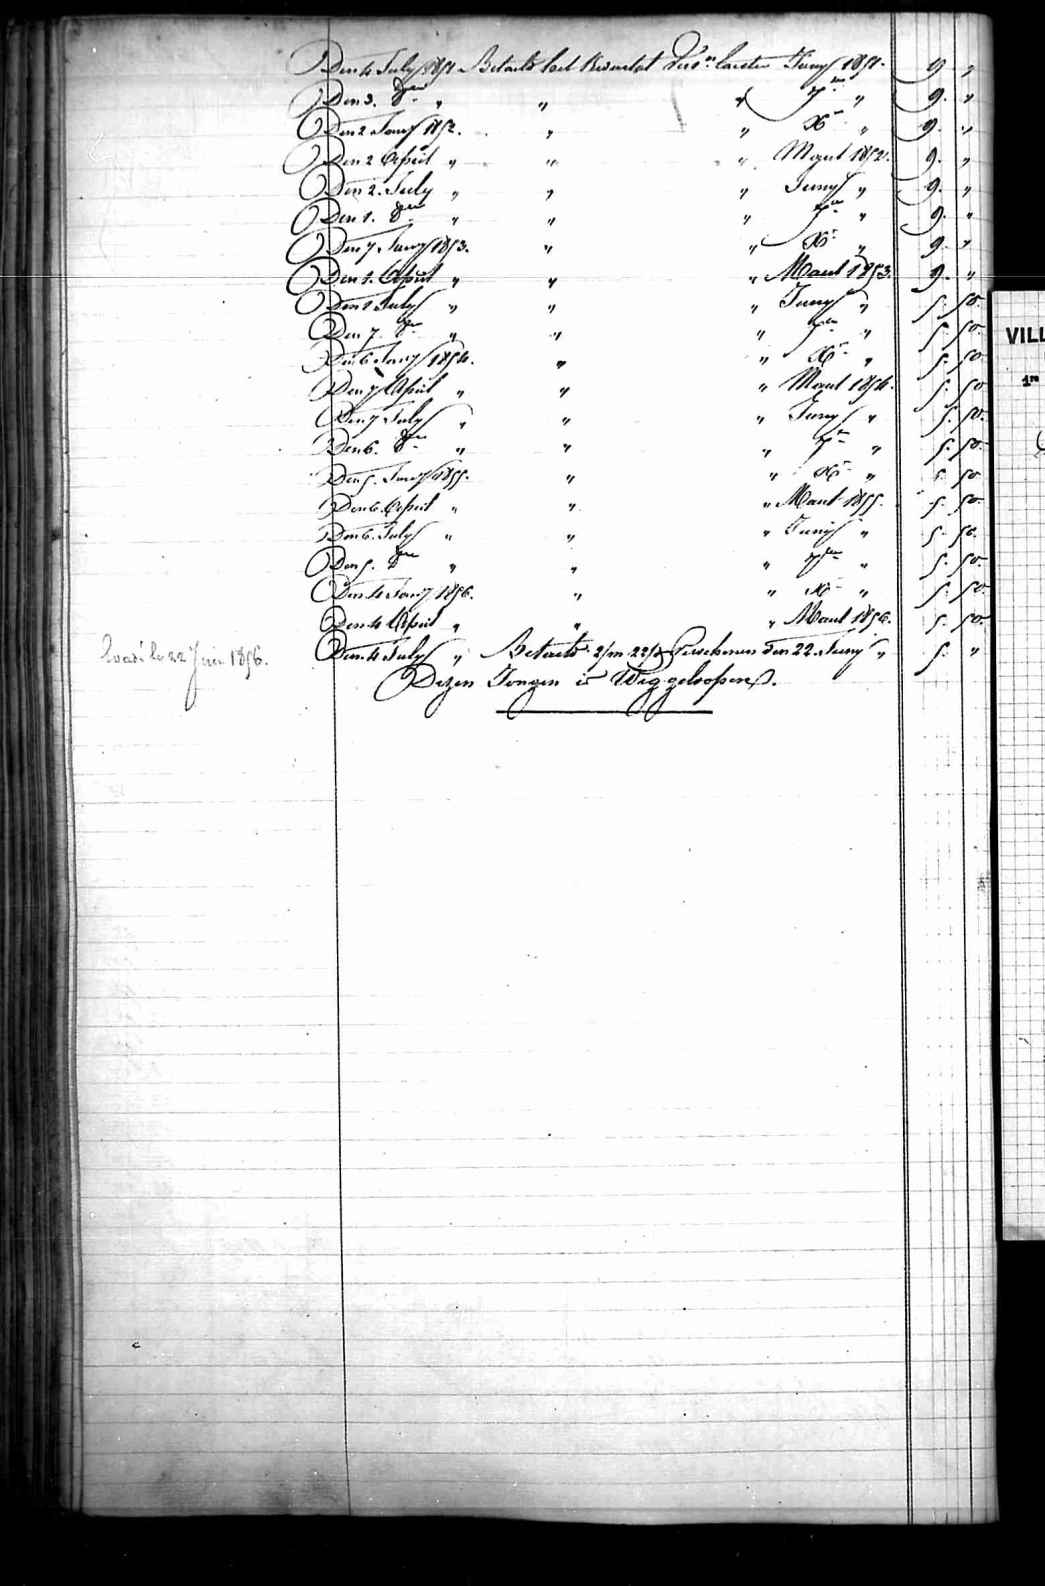 Den 4 July 1851 Betaelt het Kwartaal Vers.n laesten Juny 1851. 9 "
Den 3. 8ber " " " 7ber " 9. "
Den 2 Jany 1852. " " Xbr " 9. "
Den 2 April " " " Maert 1852. 9. "
Den 2. July " " " Juny " 9. "
Den 1. 8ber " " " 7ber " 9. "
Den 7 Jany 1853. " " Xbr " 9. "
Den 1. April " " " Maert 1853. 9. "
Den 1 July " " " Juny " 5. 50.
Den 7. 8ber " " " 7ber " 5. 50.
Den 6 Jany 1854. " " Xbr " 5. 50
Den 7 April " " " Maert 1854. 5. 50
Den 7 July " " " Juny " 5. 50.
Den 6. 8ber " " " 7br " 5. 50.
Den 5. Jany 1855. " " Xbr " 5. 50
Den 6. April " " " Maert 1855. 5. 50.
Den 6. July " " " Juny " 5. 50.
Den 5. 8ber " " " 7ber " 5. 50.
Den 4 Jany 1856. " " Xbr " 5. 50.
Den 4 April " " " Maert 1856. 5. 50.
Den 4 July " Betaelt 2/m 22/d Verschenen den 22. Juny " 5. "
Dezen Jongen is Weggeloopen.
Evadé le 22 Juin 1856.
VILL
1re